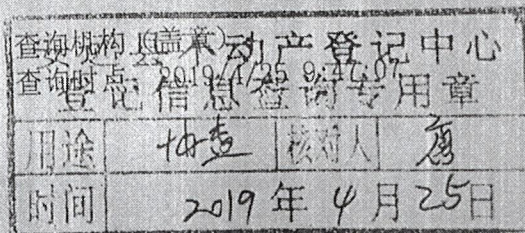 查询机构(盖章)
不动产登记中心
查询时点 2019/4/25 9:47:07
登记信息查询专用章
用途 协查 核对人
时间 2019年4月25日